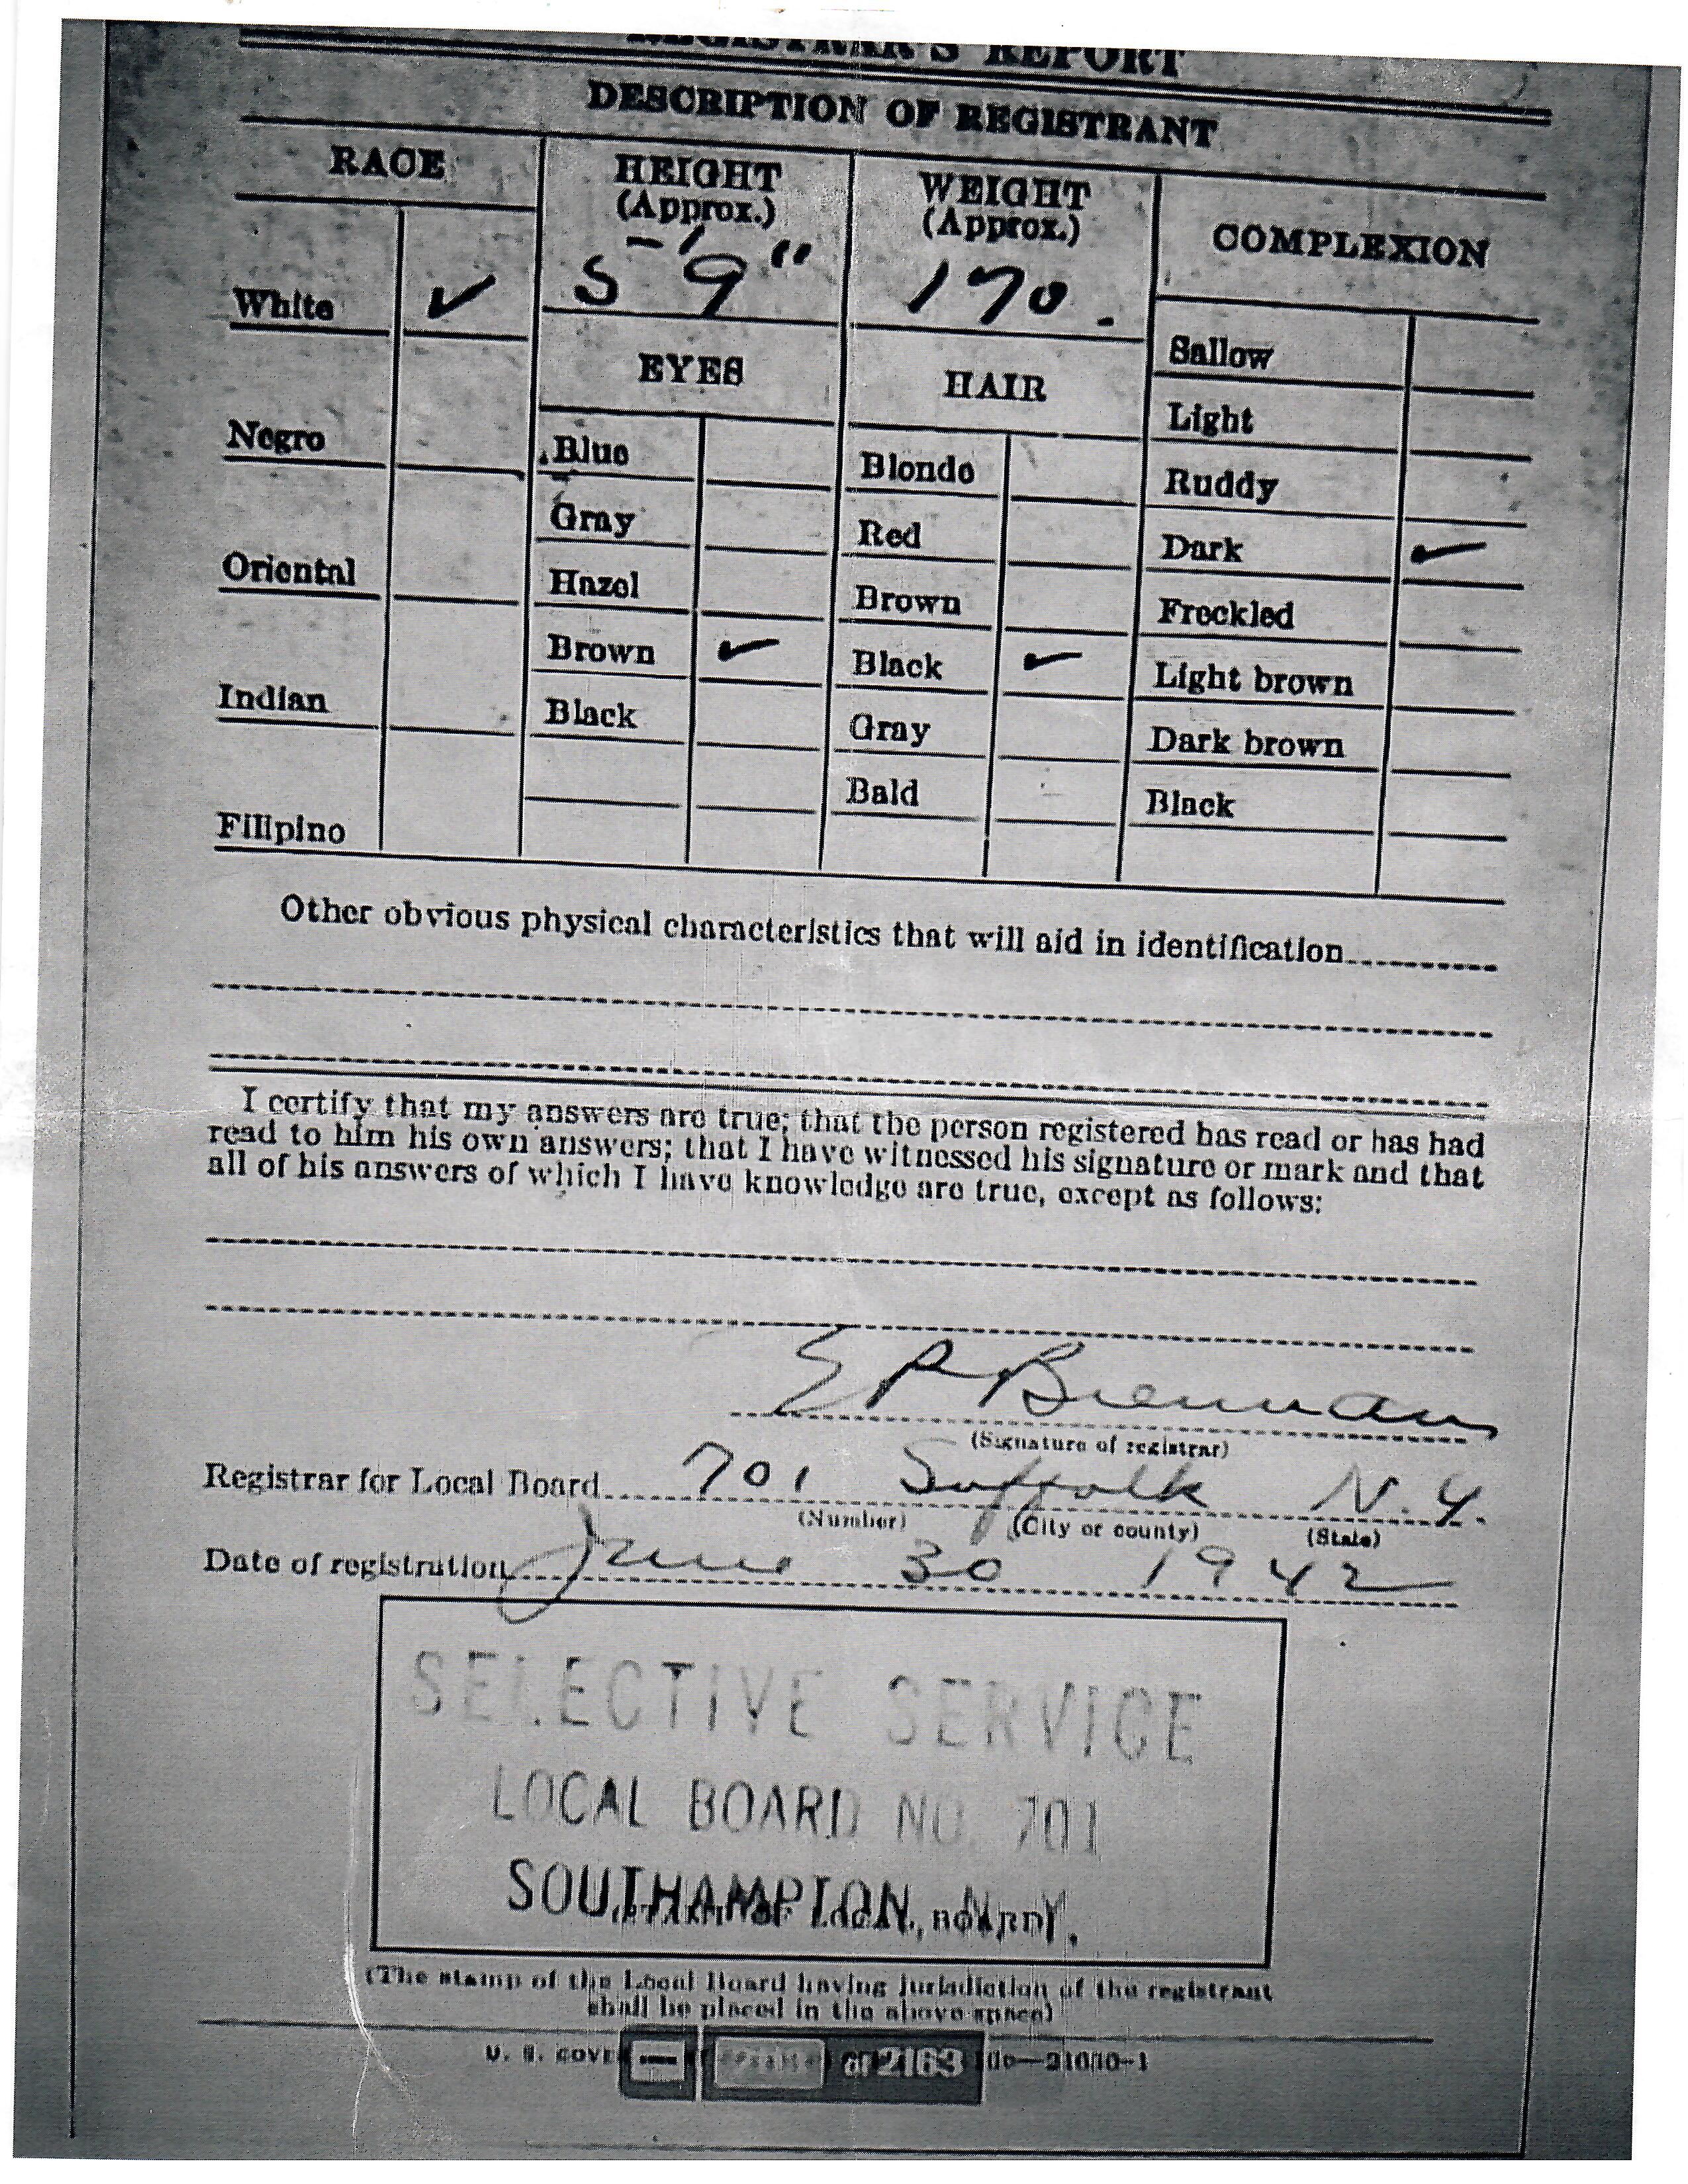 REGISTRAR'S REPORT
DESCRIPTION OF REGISTRANT
RACE
HEIGHT
(Approx.)
WEIGHT
(Approx.)
COMPLEXION
5' 9"
170.
White ✓
EYES
HAIR
Sallow
Light
Negro
Blue
Blonde
Ruddy
Gray
Red
Dark ✓
Oriental
Hazel
Brown
Freckled
Brown ✓
Black ✓
Light brown
Indian
Black
Gray
Dark brown
Bald
Black
Filipino
Other obvious physical characteristics that will aid in identification
I certify that my answers are true; that the person registered has read or has had
read to him his own answers; that I have witnessed his signature or mark and that
all of his answers of which I have knowledge are true, except as follows:
E P Brennan
(Signature of registrar)
Registrar for Local Board 701 Suffolk N.Y.
(Number) (City or county) (State)
Date of registration June 30 1942
SELECTIVE SERVICE
LOCAL BOARD NO. 701
SOUTHAMPTON, N.Y.
(STAMP OF LOCAL BOARD)
(The stamp of the Local Board having jurisdiction of the registrant
shall be placed in the above space)
U. S. of 2163